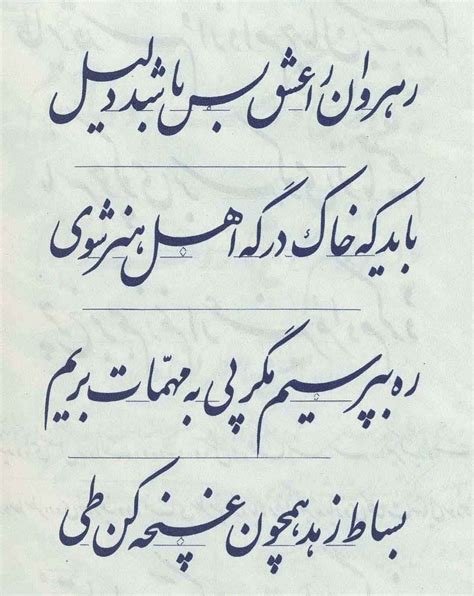 رهروان را عشق بس باشد دلیل
باید که خاک درگه اهل هنر شوی
ره بپرسیم مگر پی به مهمّات بریم
بساط زهد همچون غنچه کن طی